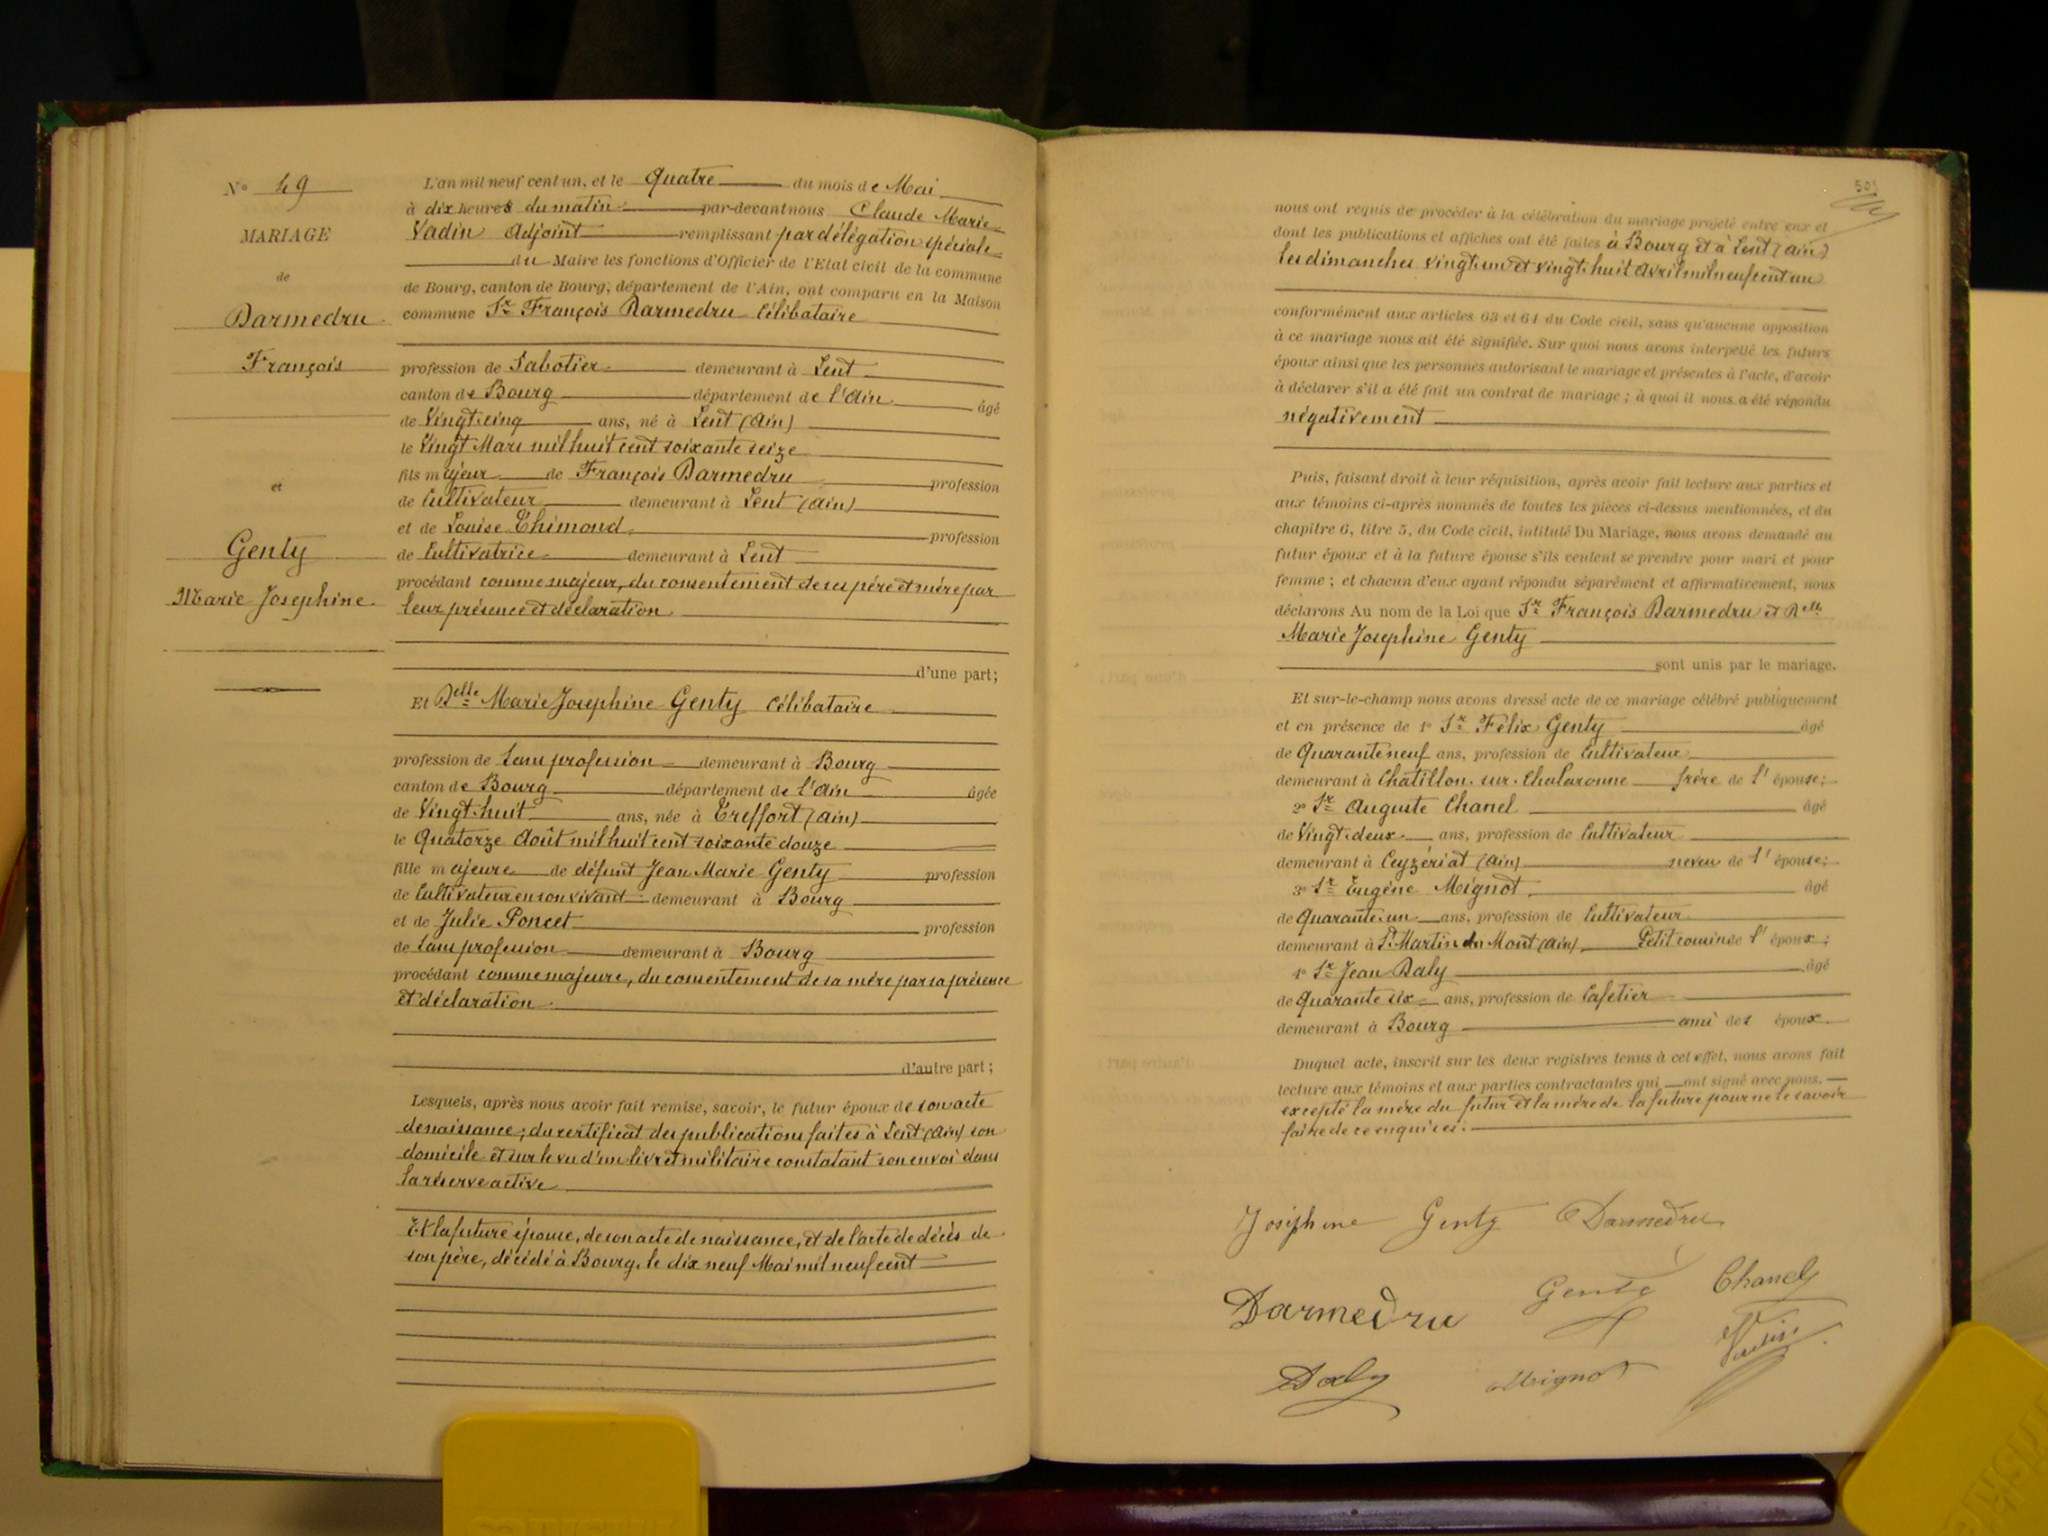 No 49
MARIAGE
de
Darmedru
François
et
Genty
Marie Josephine
L'an mil neuf cent un, et le Quatre du mois de Mai
à dix heures du matin par-devant nous Claude Marie
Vadin Adjoint remplissant par délégation spéciale
du Maire les fonctions d'Officier de l'Etat civil de la commune
de Bourg, canton de Bourg, département de l'Ain, ont comparu en la Maison
commune Sr François Darmedru Célibataire
profession de Sabotier demeurant à Lent
canton de Bourg département de l'Ain âgé
de Vingt-cinq ans, né à Lent (Ain)
le Vingt Mars mil huit cent soixante seize
fils majeur de François Darmedru profession
de Cultivateur demeurant à Lent (Ain)
et de Louise Thimond profession
de Cultivatrice demeurant à Lent
procédant comme majeur, du consentement de ses père et mère par
leur présence et déclaration
d'une part;
Et Delle Marie Josephine Genty Célibataire
profession de Sans profession demeurant à Bourg
canton de Bourg département de l'Ain âgée
de Vingt-huit ans, née à Treffort (Ain)
le Quatorze Août mil huit cent soixante douze
fille majeure de défunt Jean Marie Genty profession
de Cultivateur en son vivant demeurant à Bourg
et de Julie Poncet profession
de Sans profession demeurant à Bourg
procédant comme majeure, du consentement de sa mère par sa présence
et déclaration
d'autre part;
Lesquels, après nous avoir fait remise, savoir, le futur époux de son acte
de naissance; du certificat des publications faites à Lent (Ain) son
domicile et sur le vu d'un livret militaire constatant son envoi dans
la réserve active
Et la future épouse, de son acte de naissance, et de l'acte de décès de
son père, décédé à Bourg, le dix neuf Mai mil neuf cent
501
nous ont requis de procéder à la célébration du mariage projeté entre eux et
dont les publications et affiches ont été faites à Bourg et à Lent (Ain)
les dimanches vingt-un et vingt-huit Avril mil neuf cent un
conformément aux articles 63 et 64 du Code civil, sans qu'aucune opposition
à ce mariage nous ait été signifiée. Sur quoi nous avons interpellé les futurs
époux ainsi que les personnes autorisant le mariage et présentes à l'acte, d'avoir
à déclarer s'il a été fait un contrat de mariage; à quoi il nous a été répondu
négativement
Puis, faisant droit à leur réquisition, après avoir fait lecture aux parties et
aux témoins ci-après nommés de toutes les pièces ci-dessus mentionnées, et du
chapitre 6, titre 5, du Code civil, intitulé Du Mariage, nous avons demandé au
futur époux et à la future épouse s'ils veulent se prendre pour mari et pour
femme; et chacun d'eux ayant répondu séparément et affirmativement, nous
déclarons Au nom de la Loi que Sr François Darmedru et Delle
Marie Josephine Genty
sont unis par le mariage.
Et sur-le-champ nous avons dressé acte de ce mariage célébré publiquement
et en présence de 1° Sr Félix Genty âgé
de Quarante neuf ans, profession de Cultivateur
demeurant à Chatillon-sur-Chalaronne frère de l'épouse;
2° Sr Auguste Chanel âgé
de Vingt-deux ans, profession de Cultivateur
demeurant à Ceyzériat (Ain) neveu de l'épouse;
3° Sr Eugène Mignot âgé
de Quarante-un ans, profession de Cultivateur
demeurant à St Martin du Mont (Ain) Petit cousin de l'époux;
4° Sr Jean Daly âgé
de Quarante six ans, profession de Cafetier
demeurant à Bourg ami des époux
Duquel acte, inscrit sur les deux registres tenus à cet effet, nous avons fait
lecture aux témoins et aux parties contractantes qui ont signé avec nous,
excepté la mère du futur et la mère de la future pour ne le savoir
faire de ce enquises.
Josephine Genty Darmedru
Darmedru Genty Chanel
Daly Mignot Vadin